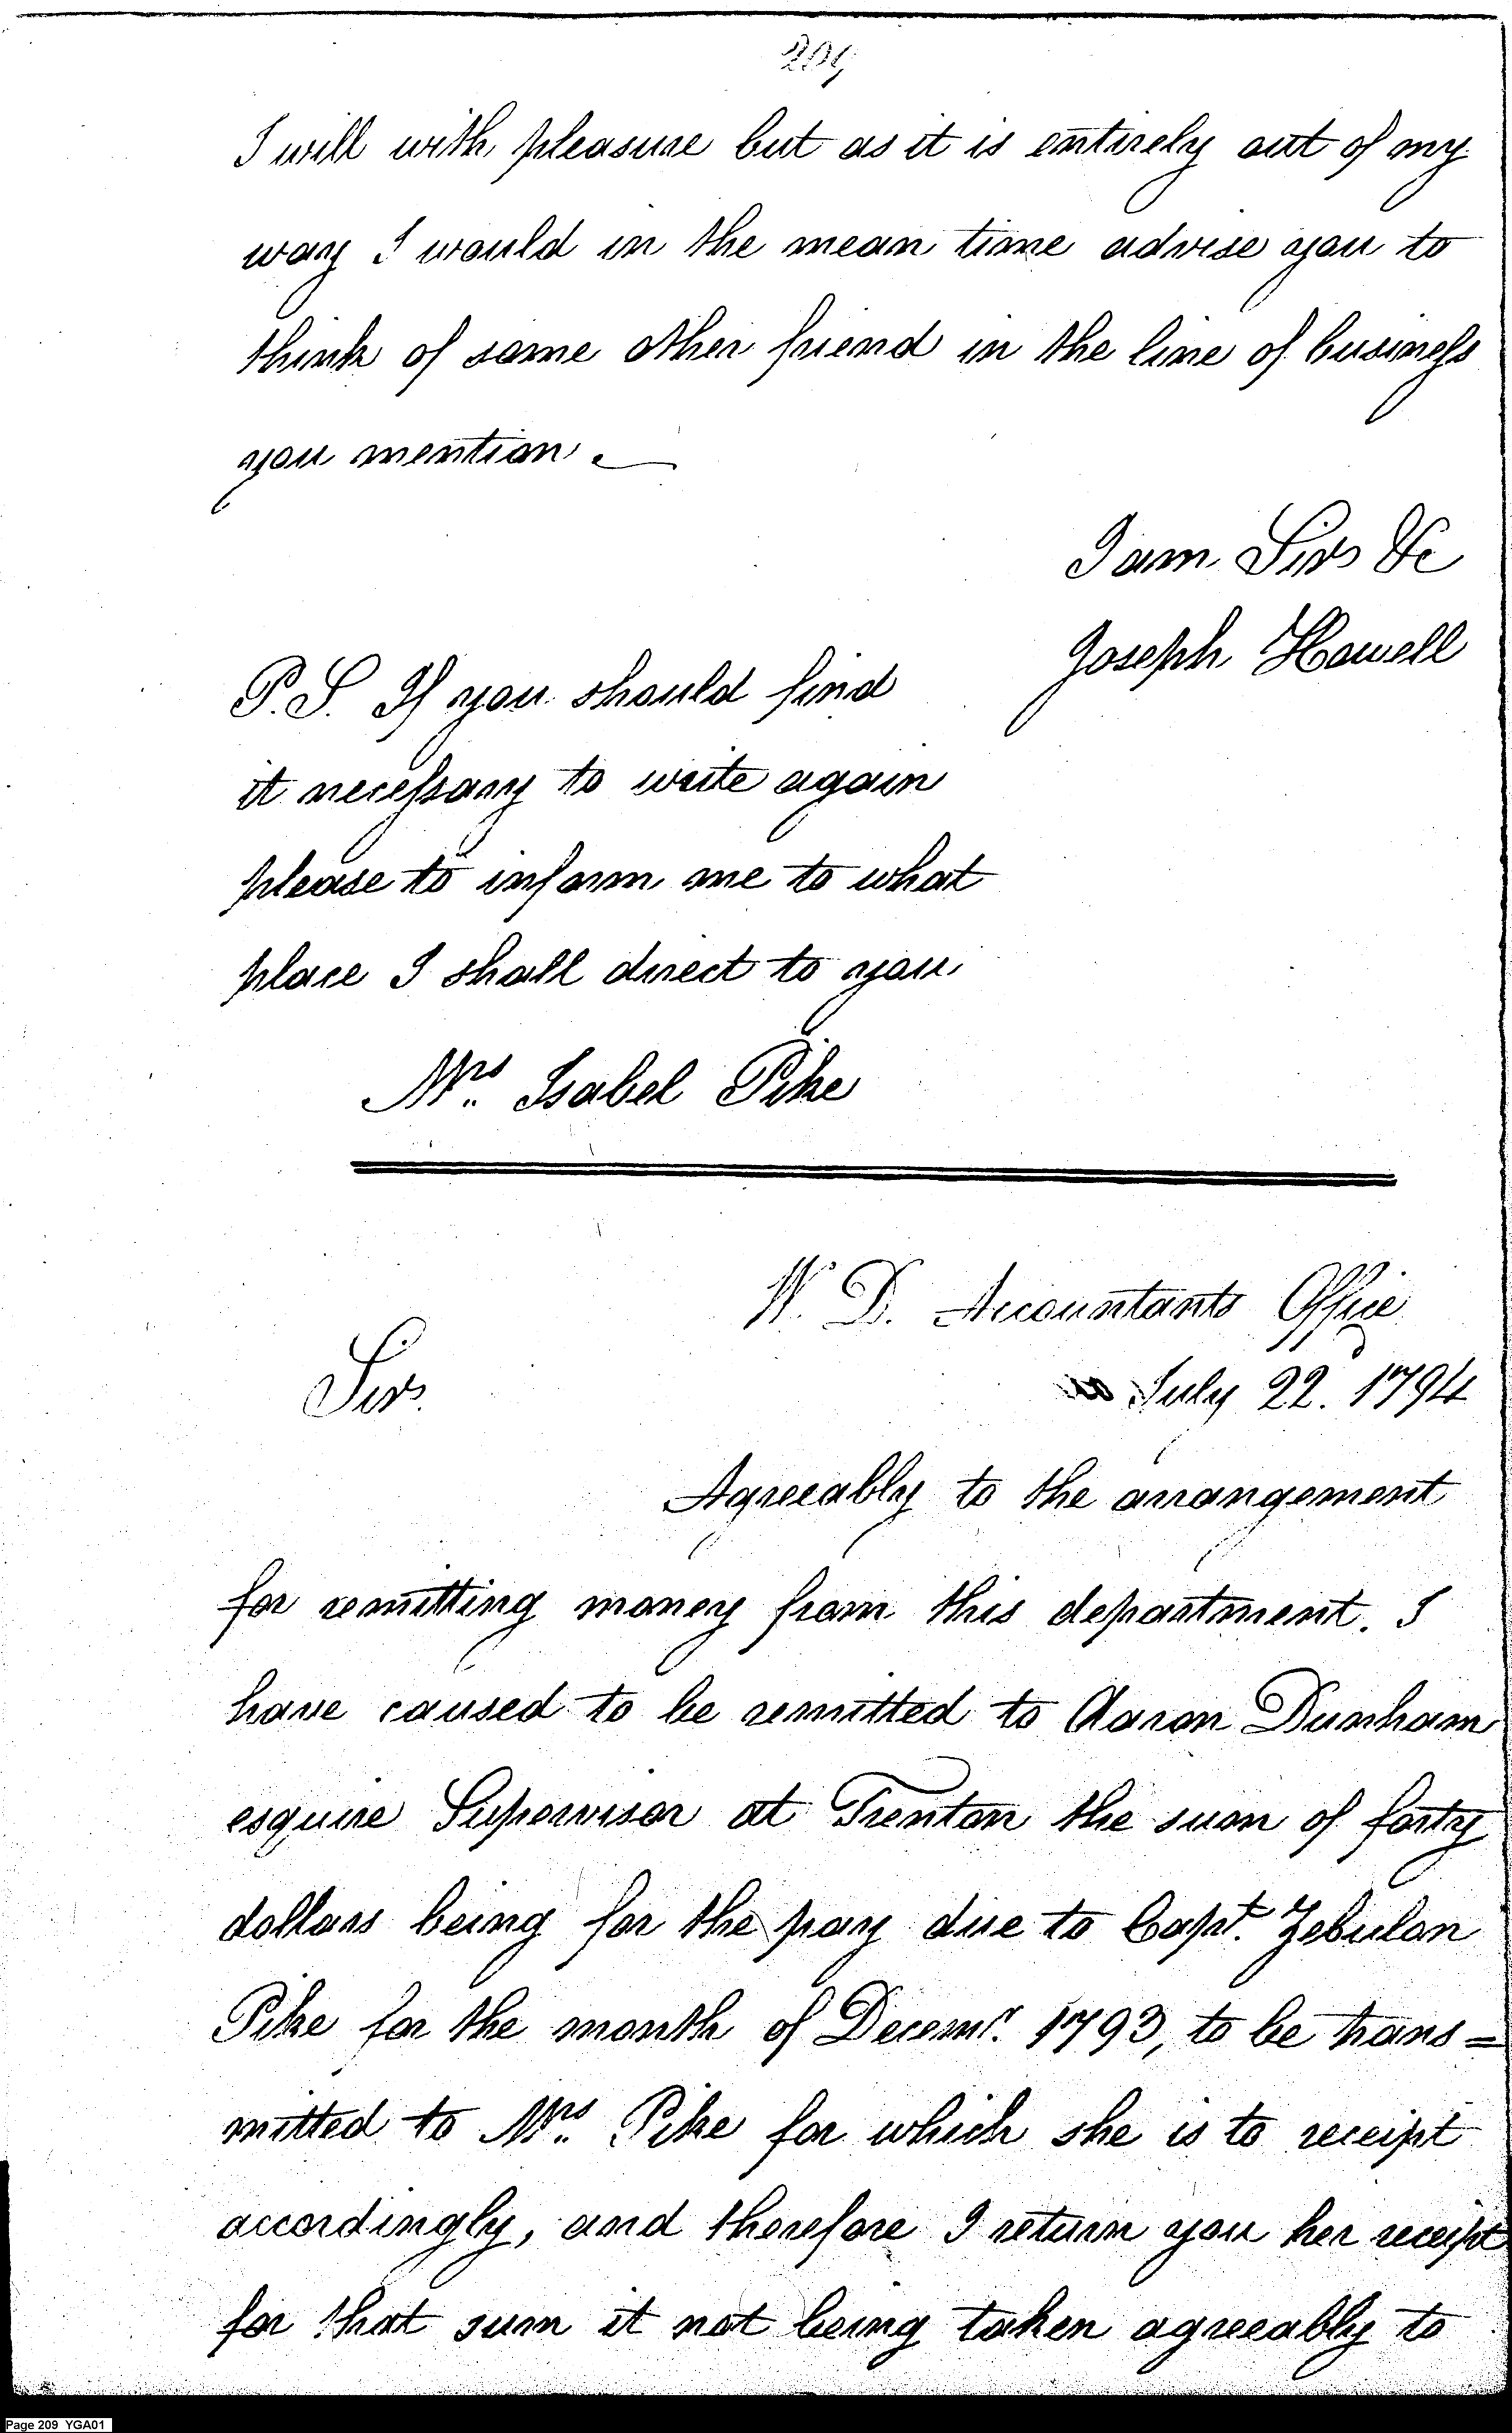 209
I will with pleasure but as it is entirely out of my
way I would in the mean time advise you to
think of some other friend in the line of business
you mention.
I am Sir &c
Joseph Howell
P.S. If you should find
it necessary to write again
please to inform me to what
place I shall direct to you
Mrs. Isabel Pike
W. D. Accountants Office
Sir.
July 22. 1794
Agreeably to the arrangement
for remitting money from this department. I
have caused to be remitted to Aaron Dunham
esquire Supervisor at Trenton the sum of forty
dollars being for the pay due to Capt. Zebulon
Pike for the month of Decemr. 1793, to be trans=
mitted to Mrs. Pike for which she is to receipt
accordingly, and therefore I return you her receipt
for that sum it not being taken agreeably to
Page 209 YGA01